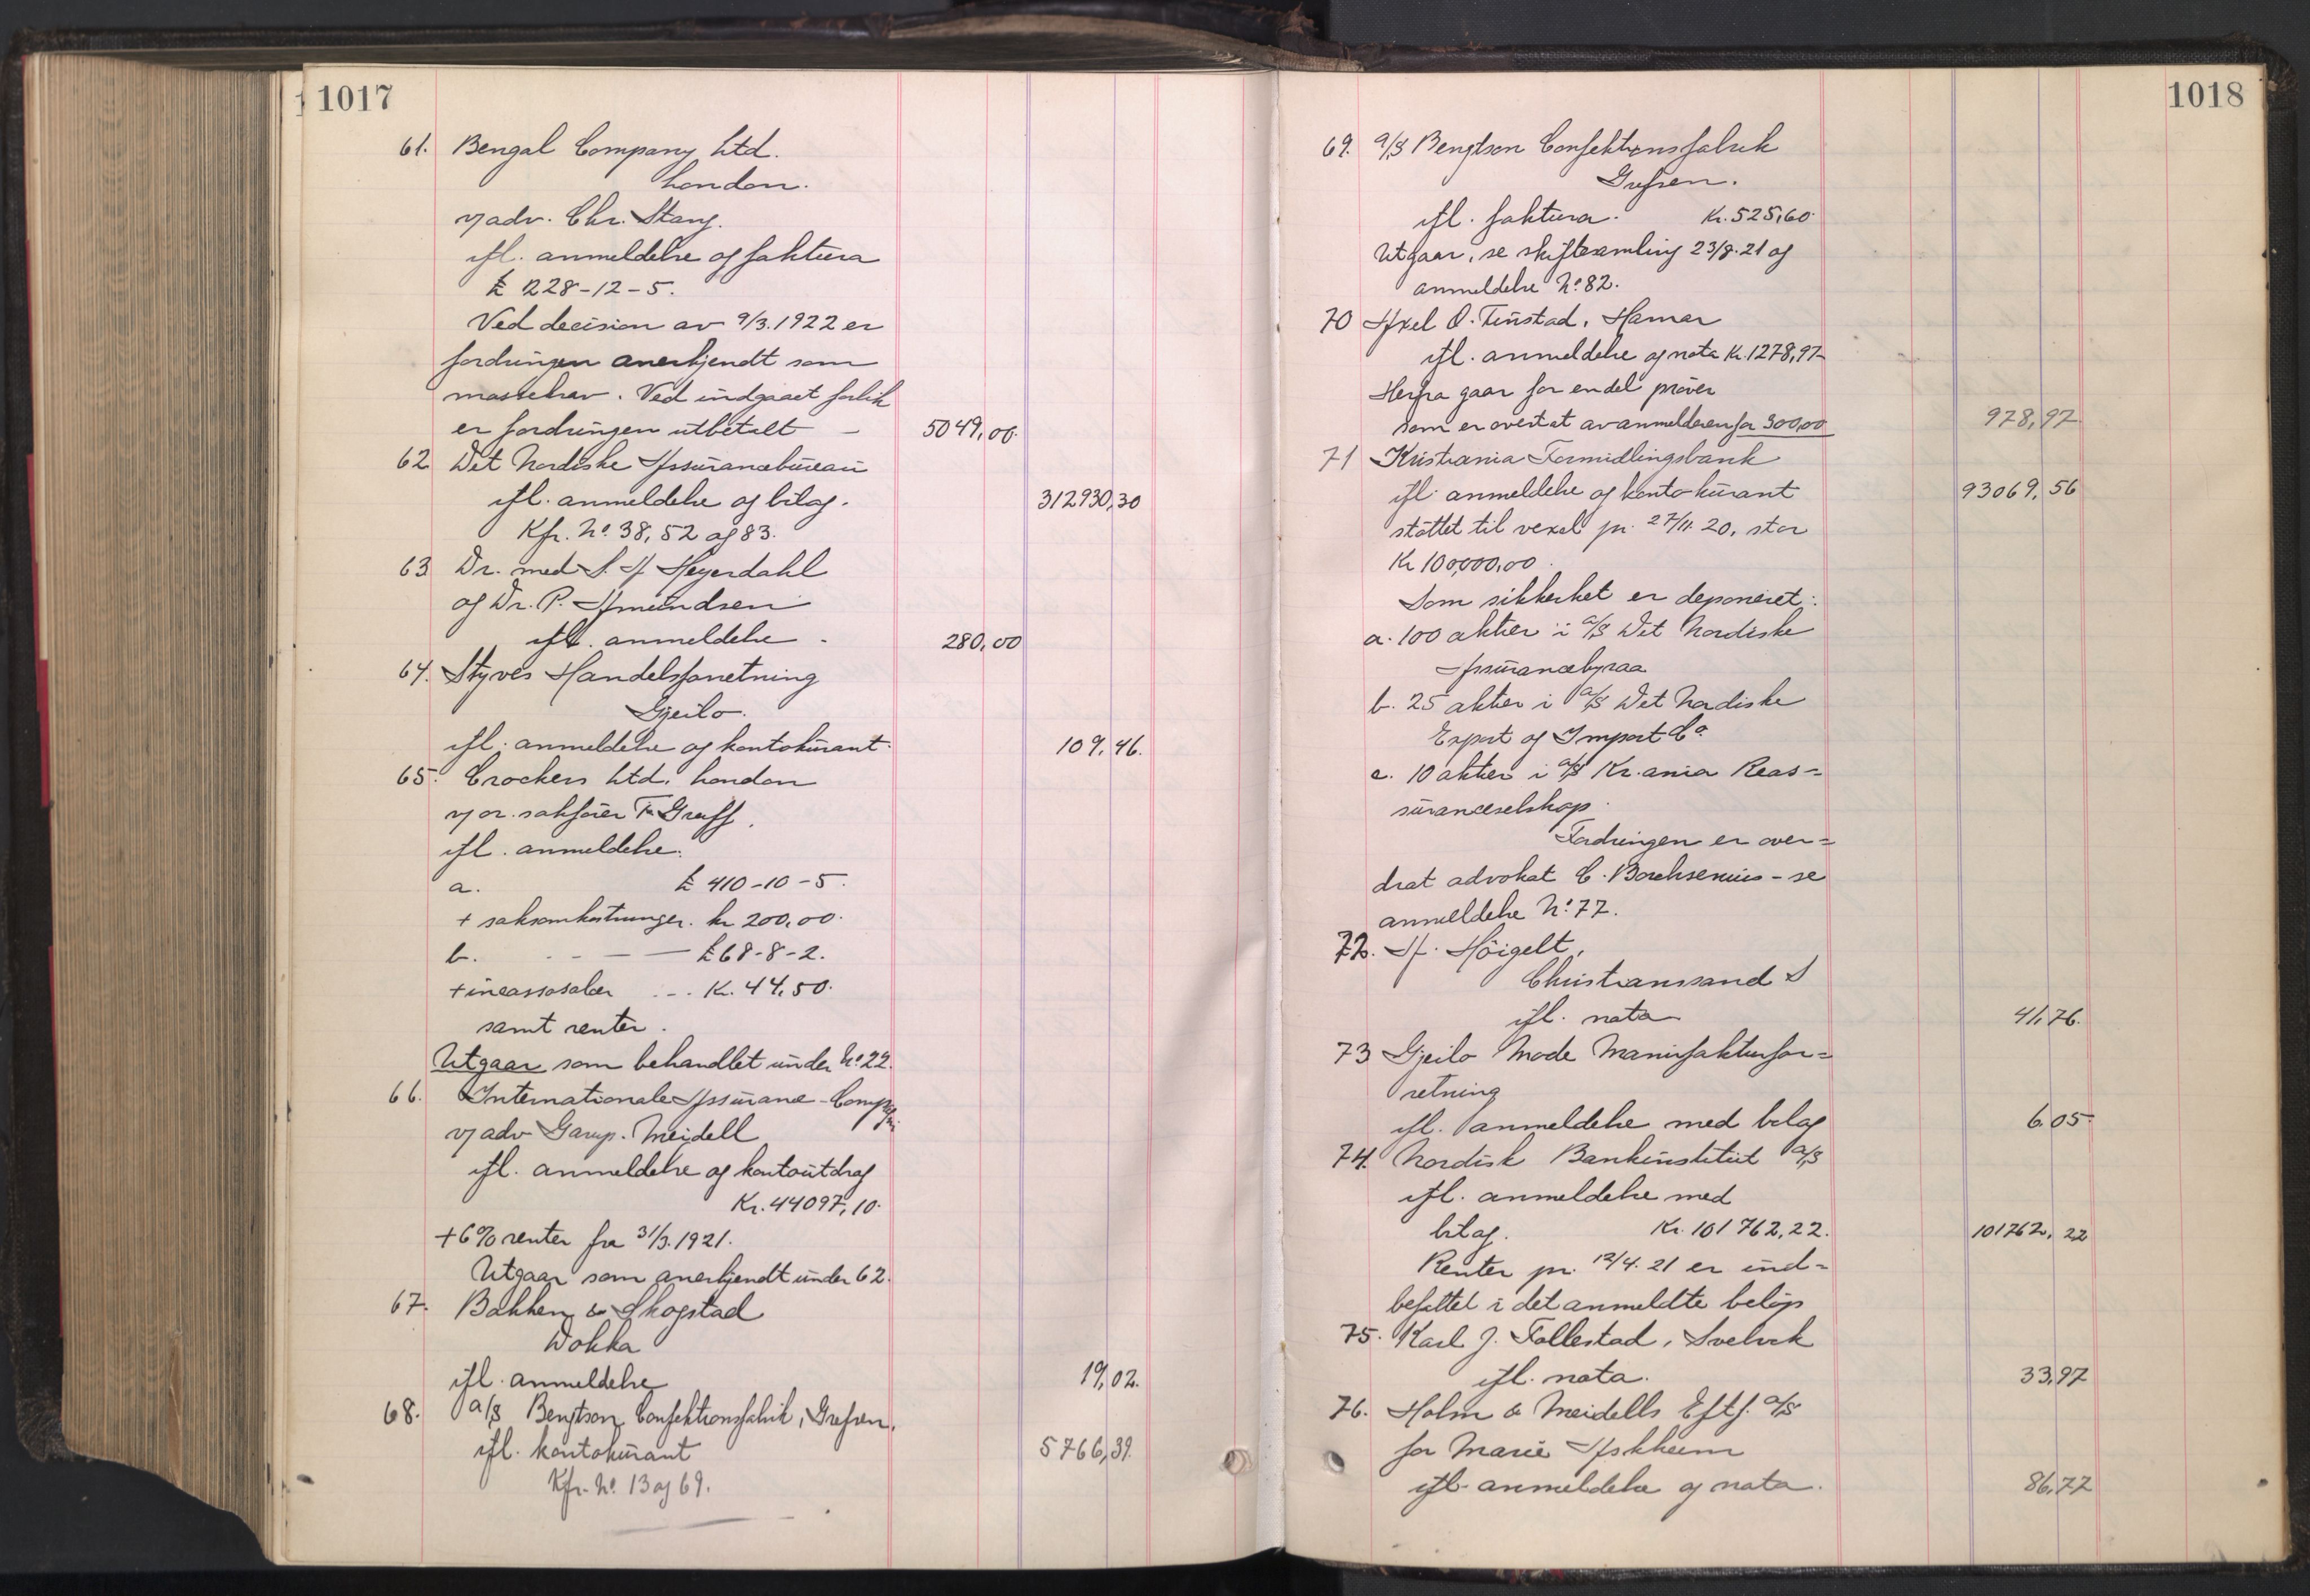 1017
61. Bengal Company Ltd.
London.
v/ adv. Chr. Stang.
ifl. anmeldelse og faktura
£ 228-12-5.
Ved decision av 9/3.1922 er
fordringen anerkjendt som
massekrav. Ved indgaaet forlik
er fordringen utbetalt — 5049,00.
62 Det Nordiske Assurancebureau
ifl. anmeldelse og bilag. 312930,30
Kfr. No. 38, 52 og 83.
63 Dr. med S. A. Heyerdahl
og Dr. P. Amundsen
ifl. anmeldelse - 280,00
64. Styves Handelsforretning
Gjeilo.
ifl. anmeldelse og kontokurant. 109,46.
65. Crockers Ltd, London
v/ or. sakfører Greiff.
ifl. anmeldelse:
a. £ 410-10-5.
+ saksomkostninger. kr 200,00.
b. - - — — £68-8-2.
+ incassosalær ... Kr. 44,50.
samt renter.
Utgaar som behandlet under No. 22.
66. Internationale Assurance-Compagni
v/ adv Harup. Meidell
ifl. anmeldelse og kontoutdrag
Kr. 44097,10.
+6% renter fra 31/3.1921.
Utgaar som anerkjendt under 62.
67. Bakken & Skogstad
Dokka
ifl. anmeldelse 19,02.
68. a/s Bengtson Confektionsfabrik, Grefsen.
ifl. kontokurant 5766,39.
Kfr. No. 13 og 69.
1018
69. a/s Bengtson Confektionsfabrik
Grefsen.
ifl. faktura. Kr. 525,60.
Utgaar, se skiftesamling 23/8.21 og
anmeldelse No. 82.
70 Axel O. Tenstad, Hamar
ifl. anmeldelse og nota Kr. 1278,97
Herfra gaar for endel prøver
som er overtat av anmelderen for 300,00 978,97
71 Kristiania Formidlingsbank
ifl. anmeldelse og konto-kurant 93069,56
støttet til vexel pr. 27/11. 20, stor
Kr 100,000,00.
Som sikkerhet er deponeret:
a. 100 aktier i a/s Det Nordiske
Assurancebyraa
b. 25 aktier i a/s Det Nordiske
Export og Import Co.
c. 10 aktier i a/s Kr.ania Reas=
suranceselskap.
Fordringen er over=
drat advokat C. Borchsenius - se
anmeldelse No. 77.
72. A. Høigelt,
Christianssand S
ifl. nota 41,76.
73 Gjeilo Mode Manufakturfor=
retning
ifl. anmeldelse med bilag 6,05
74. Nordisk Bankinstitut a/s
ifl. anmeldelse med
bilag. Kr. 101762,22. 101762,22
Renter pr. 12/4. 21 er ind=
befattet i det anmeldte beløp
75. Karl J. Follestad, Svelvik
ifl. nota. 33,97
76. Holm & Meidells Eftf. a/s
for Marie Askheim
ifl. anmeldelse og nota. 86,77